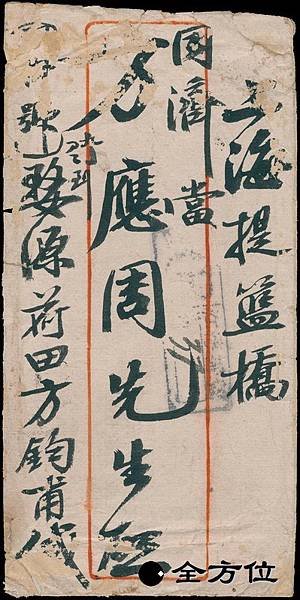 上海提籃橋
國濟當
方應周先生
號
婺源荷田方鈞甫
全方位